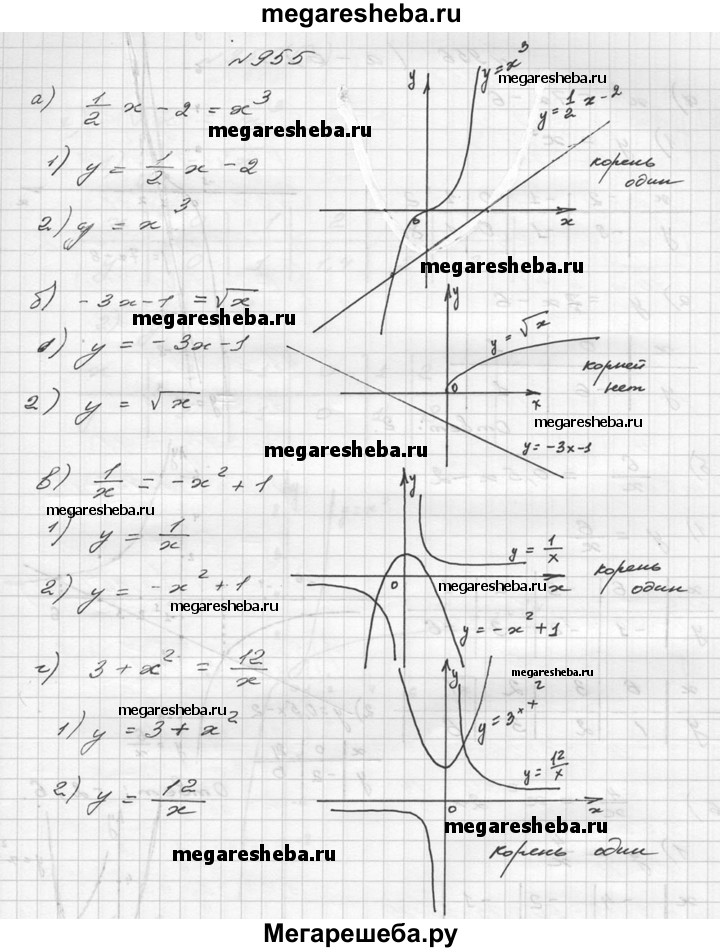 megaresheba.ru
№955
а) 1/2 x - 2 = x³
megaresheba.ru
1) y = 1/2 x - 2
2) y = x³
y
y = x³
megaresheba.ru
y = 1/2 x - 2
корень
один
0
x
megaresheba.ru
б) - 3x - 1 = √x
megaresheba.ru
1) y = - 3x - 1
2) y = √x
y
y = √x
корней
нет
0
x
megaresheba.ru
y = -3x-1
megaresheba.ru
в) 1/x = - x² + 1
megaresheba.ru
1) y = 1/x
2) y = - x² + 1
megaresheba.ru
y
y = 1/x
0
megaresheba.ru
x
корень
один
y = -x² + 1
г) 3 + x² = 12/x
megaresheba.ru
1) y = 3 + x²
2) y = 12/x
megaresheba.ru
y
megaresheba.ru
y = 3 + x²
y = 12/x
0
x
megaresheba.ru
корень один
Мегарешеба.ру